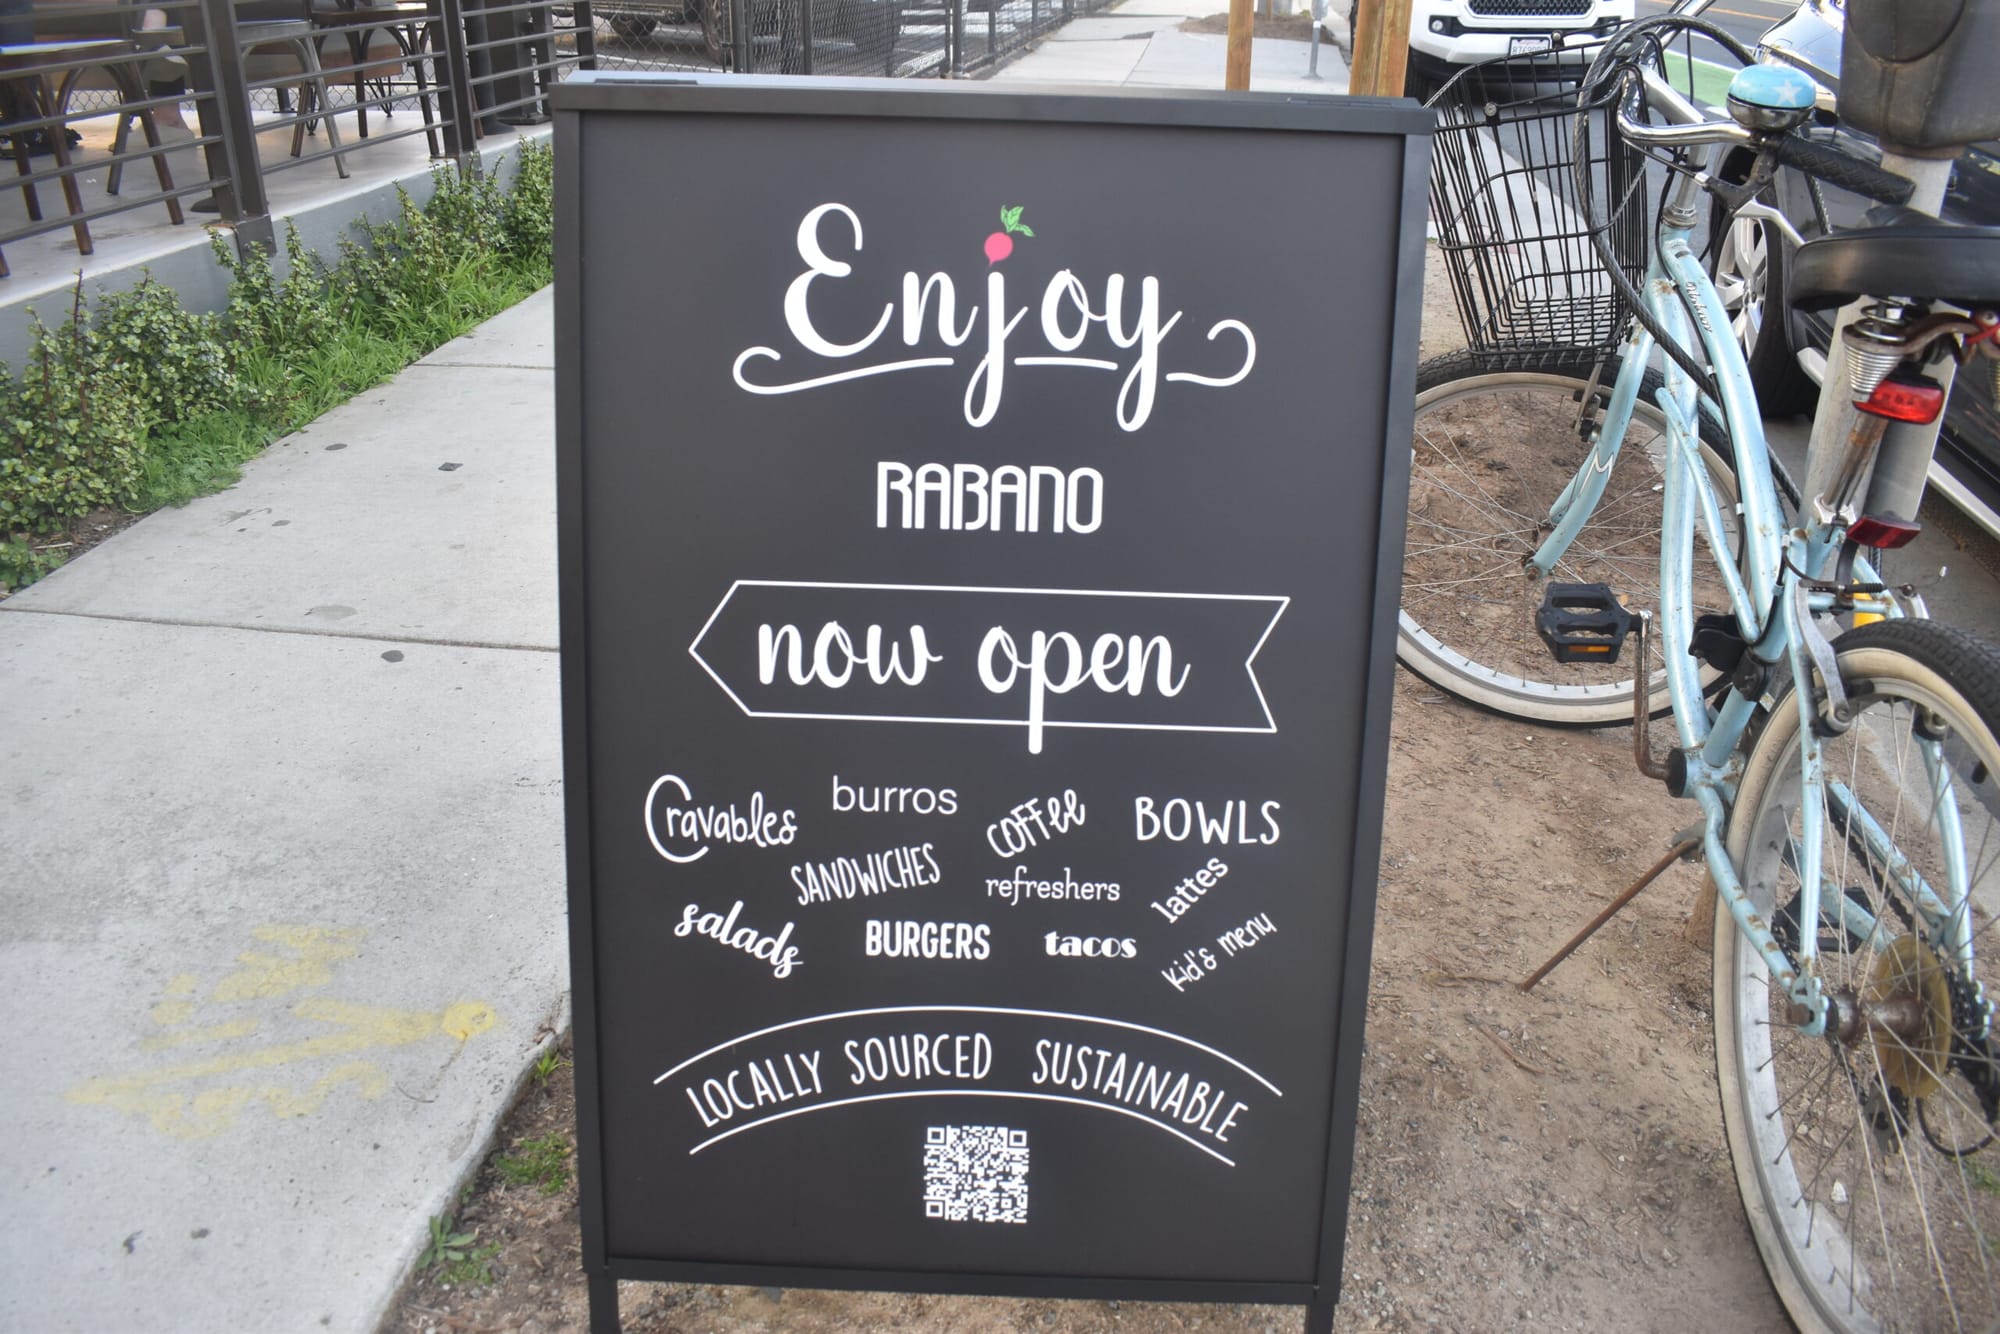 Enjoy
RABANO
now open
Cravables burros coffee BOWLS
SANDWICHES refreshers lattes
salads BURGERS tacos kid's menu
LOCALLY SOURCED SUSTAINABLE